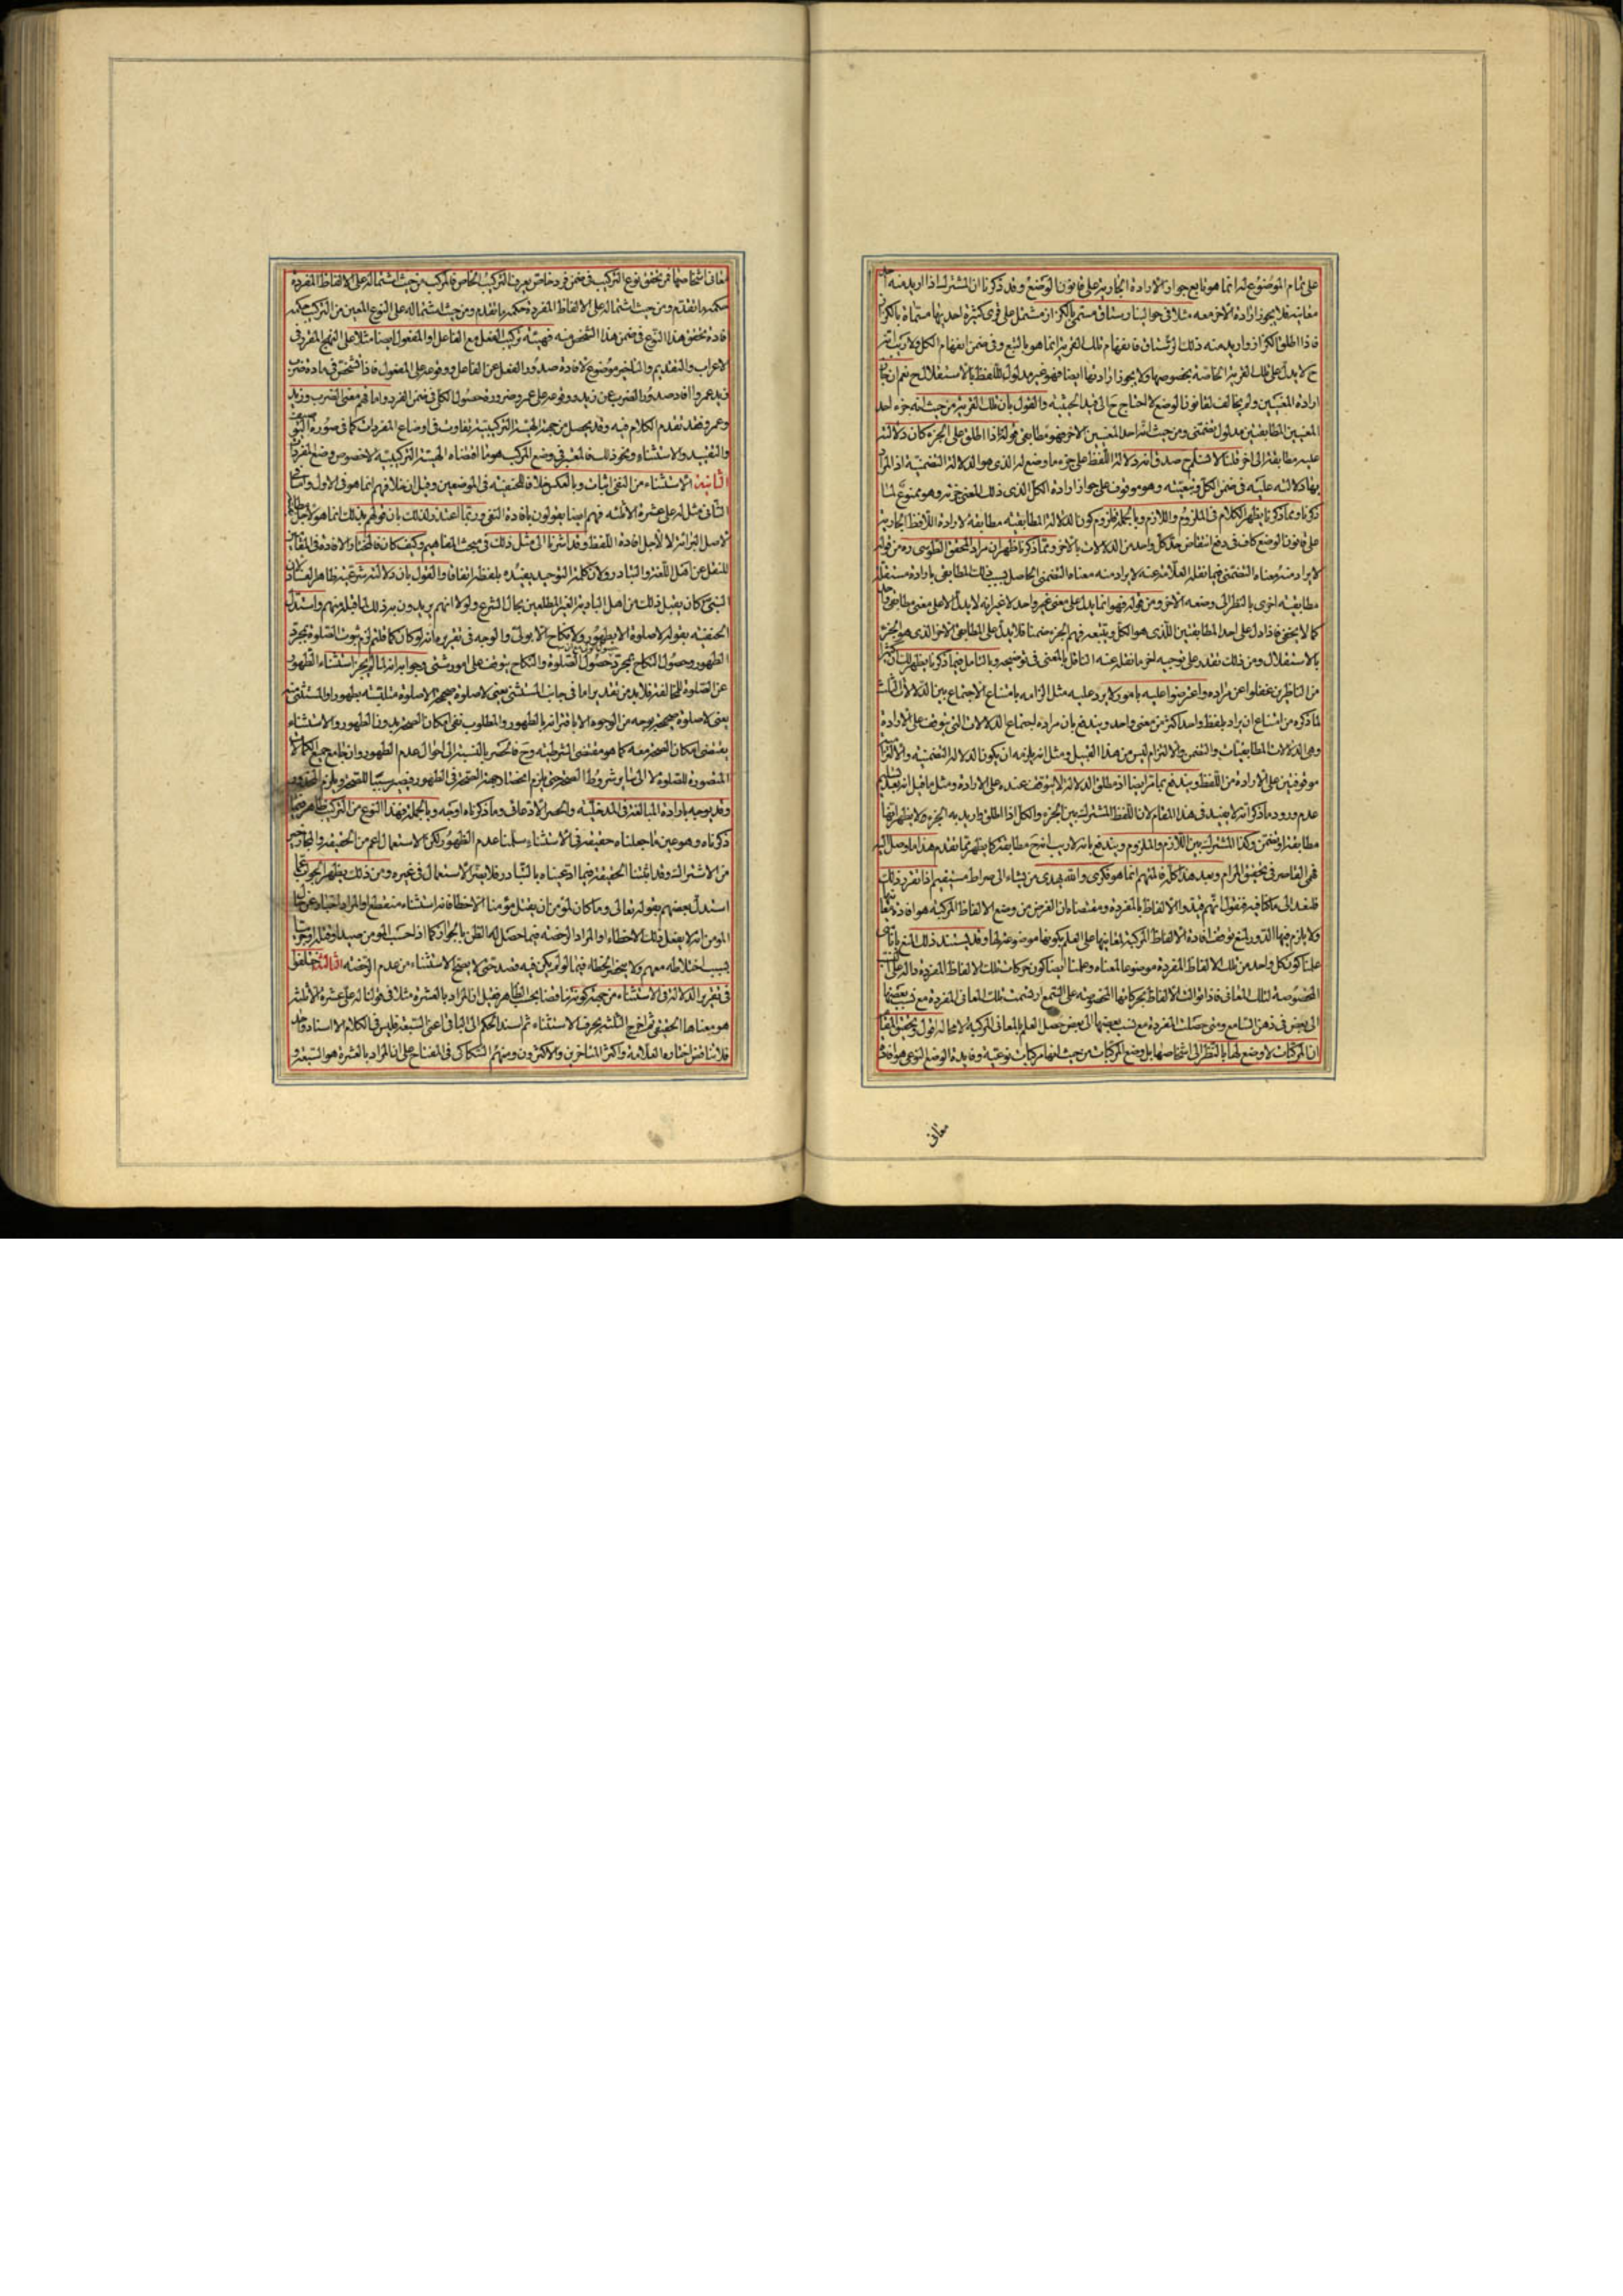 على تمام الموضوع له انما هو تابع جواز الارادة الجارية على قانون الوضع وقد ذكرنا ان المشترك اذا اريد منه احد
معانيه فلا يجوز ارادة الاخر معه مثلا في حوالينا رستاق مسمى بالكزاز مشتمل على قرى كثيرة احديها مسماة بالكزاز
فاذا اطلق الكزاز واريد منه ذلك الرستاق فانفهام تلك القرية انما هو بالتبع وفي ضمن انفهام الكل ولا ريب انه
ح لا يدل على تلك القرية الخاصة بخصوصها ولا يجوز ارادتها ايضا فهو غير مدلول اللفظ بالاستقلال ح نعم ان جاز
ارادة المعنيين ولم يخالف لقانون الوضع لاحتاج ح الى قيد الحيثية والقول بان تلك القرية من حيث انه جزء احد
المعنيين المطابقيين مدلول تضمني ومن حيث انه احد المعنيين الاخر فهو مطابقي قوله اذا اطلق على الجزء كان دلالته
عليه مطابقة الى اخر قلنا لا نسلم ح صدق انه دلالة اللفظ على جزء ما وضع له الذي هو الدلالة التضمنية اذ المراد
بها دلالته عليه في ضمن الكل وتبعيته وهو موقوف على جواز ارادة الكل الذي ذلك المعنى جزئه وهو ممنوع لما
ذكرنا ومما ذكرنا يظهر الكلام في الملزوم واللازم وبالجملة فلزوم كون الدلالة المطابقية مطابقة لارادة اللافظ الجارية
على قانون الوضع كاف في دفع انتقاض حد كل واحد من الدلالات بالاخر ومما ذكرنا ظهر ان مراد المحقق الطوسي ره من قوله
لا يراد منه معناه التضمني فيما نقله العلامة عنه لا يراد منه معناه التضمني الحاصل بسبب ذلك المطابقي بارادة مستقلة
مطابقية اخرى بالنظر الى وضعه الاخر ومن قوله فهو انما يدل على معنى غير واحد لا غير انه لا يدل الا على معنى مطابقي واحد
كما لا يخفى فاذا دل على احد المطابقيين الذي هو الكل ويتبعه فهم الجزء ضمنا فلا يدل على المطابقي الاخر الذي هو الجزء
بالاستقلال ومن ذلك تقدر على توجيه اخر ما نقله عنه الناقل بالمعنى في توضيحه وبالتامل فيما ذكرنا يظهر لك ان كثيرا
من الناظرين غفلوا عن مراده واعترضوا عليه بامور لا يرد عليه مثل الزامه بامتناع الاجتماع بين الدلالات الثلث
لما ذكره من امتناع ان يراد بلفظ واحد اكثر من معنى واحد ويندفع بان مراده اجتماع الدلالات التي يتوقف على الارادة
وهي الدلالات المطابقيات والتضمن والالتزام ليس من هذا القبيل ومثل انه يلزمه ان يكون الدلالة التضمنية والالتزامية
موقوفين على الارادة من اللفظ ويندفع بما مر ايضا اذ مطلق الدلالة لا يتوقف عنده على الارادة ومثل ما قيل انه بعد تسليم
عدم ورود ما ذكر انه لا يفيد في هذا المقام لان اللفظ المشترك بين الجزء والكل اذا اطلق واريد به الجزء ولا يظهر انها
مطابقة او تضمن وكذا المشترك بين اللازم والملزوم ويندفع بانه لا ريب انه ح مطابقة كما يظهر مما تقدم هذا ما وصل اليه
فهمي القاصر في تحقيق المرام وبعد هذا كله فالمتهم انما هو فكري والله يهدي من يشاء الى صراط مستقيم اذا تقرر ذلك
فلنعد الى ما كنا فيه فنقول انهم قيدوا الالفاظ بالمفردة ومقتضاه ان الغرض من وضع الالفاظ المركبة هو افادة معانيها
ولا يلزم فيها الدور لمنع توقف افادة الالفاظ المركبة لمعانيها على العلم بكونها موضوعة لها وقد يستند ذلك المنع بانا متى
علمنا كون كل واحد من تلك الالفاظ المفردة موضوعا لمعناه وعلمنا ايضا كون حركات تلك الالفاظ المفردة دالة على النسب
المخصوصة لتلك المعاني فاذا توالت الالفاظ بحركاتها المخصوصة على السمع ارتسمت تلك المعاني المفردة مع نسب بعضها
الى بعض في ذهن السامع ومتى حصلت المفردة مع نسب بعضها الى بعض حصل العلم بالمعاني المركبة لا محالة اقول وتحقيق المقام
ان المركبات لا وضع لها بالنظر الى اشخاصها بل وضع المركبات من حيث انها مركبات نوعية وفايدة الوضع النوعي هو افادة
معاني
معاني اشخاصها فمن تحقق نوع التركيب في ضمن فرد خاص يعرف التركيب الخاص فالمركب من حيث اشتماله على الالفاظ المفردة
حكمه ما تقدم ومن حيث اشتماله على الالفاظ المفردة حكمه ما تقدم ومن حيث اشتماله على النوع المعين من التركيب حكمه
افادة تحقق هذا النوع في ضمن هذا الشخص منه فهيئة تركيب الفعل مع الفاعل او المفعول ايضا مثلا على النهج المقرر في
الاعراب والتقديم والتاخير موضوع لافادة صدور الفعل عن الفاعل ووقوعه على المفعول فاذا تشخص في مادة ضرب
زيد عمروا افاد صدور الضرب عن زيد ووقوعه على عمرو ضرورة حصول الكل في ضمن الفرد واما فهم معنى الضرب وزيد
وعمرو فقد تقدم الكلام فيه وقد يحصل من جهة الهيئة التركيبية تفاوت في اوضاع المفردات كما في صورة التوصيف
والتقييد والاستثناء ونحو ذلك فالمعتبر في وضع المركب هو ما اقتضاه الهيئة التركيبية لا خصوص وضع المفردات
الثانية الاستثناء من النفي اثبات وبالعكس خلافا للحنفية في الموضعين وقيل ان خلافهم انما هو في الاول واما
الثاني مثل له على عشرة الا ثلثة فهم ايضا يقولون بافادة النفي وربما اعتذر لذلك بان قولهم بذلك انما هو لاجل مطابقة
الاصل البرائة لا لاجل افادة اللفظ وقد اشرنا الى مثل ذلك في مبحث المفاهيم وكيف كان فالمختار الافادة في المقامين
للنقل عن اهل اللغة والتبادر ولان كلمة التوحيد يفيده بلفظه اتفاقا والقول بان دلالته شرعية ظاهر الفساد لان
النبي كان يقبل ذلك من اهل البادية الغير المطلعين بحال الشرع ولولا انهم يريدون به ذلك لما قبله منهم واستدل
الحنفية بقوله لا صلوة الا بطهور ولا نكاح الا بولي والوجه في تقريره انه لو كان كما قلتم لزم ثبوت الصلوة بمجرد
الطهور وحصول النكاح بمجرد حصول الصلوة والنكاح يتوقف على امور شتى وجوابه انه لما لم يجز استثناء الطهور
عن الصلوة للمخالفة فلا بد من تقدير اما في جانب المستثنى يعني لا صلوة صحيحة الا صلوة متلبسة بطهور او المستثنى منه
يعني لا صلوة صحيحة بوجه من الوجوه الا باقترانه بالطهور والمطلوب نفي امكان الصحة بدون الطهور والاستثناء
يقتضي امكان الصحة معه كما هو مقتضى الشرطية وح فالحصر بالنسبة الى احوال عدم الطهور وان جامع جميع الكمالات
المتصورة للصلوة لا الى ساير شروط الصحة حتى يلزم انحصار جهة الصحة في الطهور فيصير سببا للصحة ويلزم المحذور
وقد يوجه بارادة المبالغة في المدخلية والحصر الادعائي وما ذكرناه اوجه وبالجملة فهذا النوع من التركيب ظاهر فيما
ذكرناه وهو عين ما جعلناه حقيقة في الاستثناء سلمنا عدم الظهور لكن الاستعمال اعم من الحقيقة والمجاز خير
من الاشتراك وقد اثبتنا الحقيقة فيما ادعيناه بالتبادر فلا يضر الاستعمال في غيره ومن ذلك يظهر الجواب عما
استدل بعضهم بقوله تعالى وما كان لمؤمن ان يقتل مؤمنا الا خطأ فانه استثناء منقطع او المراد اخبار عن حال
المومن انه لا يفعل ذلك الا خطاء او المراد الرخصة فيما حصل له الظن بالجواز كما اذا حسب المومن صيدا وقتله او حربيا
بسبب اختلاطه معهم ولا يتجه الخطاء فيما لو لم يكن فيه قصد حتى لا يصح الاستثناء من عدم الرخصة الثالثة اختلفوا
في تقرير الدلالة في الاستثناء من جهة كونه تناقضا بحسب الظاهر فقيل ان المراد بالعشرة مثلا في قولنا له على عشرة الا ثلثة
هو معناها الحقيقي ثم اخرج الثلثة بحرف الاستثناء ثم اسند الحكم الى الباقي اعني السبعة فليس في الكلام الا اسناد واحد
فلا تناقض اختاره العلامة واكثر المتاخرين والاكثرون ومنهم السكاكي في المفتاح على ان المراد بالعشرة هو السبعة و